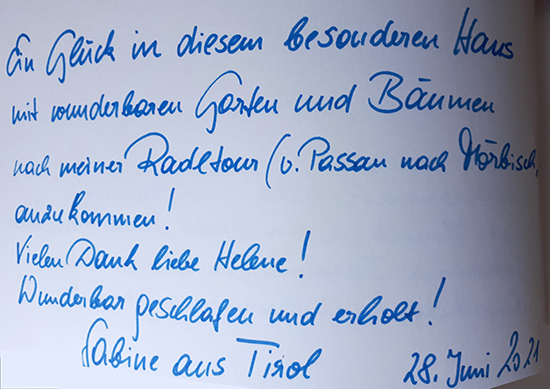 Ein Glück in diesem besonderen Haus
mit wunderbaren Garten und Bäumen
nach meiner Radltour (v. Passau nach Mörbisch,
anzukommen!
Vielen Dank liebe Helene!
Wunderbar geschlafen und erholt!
Sabine aus Tirol 28. Juni 2021